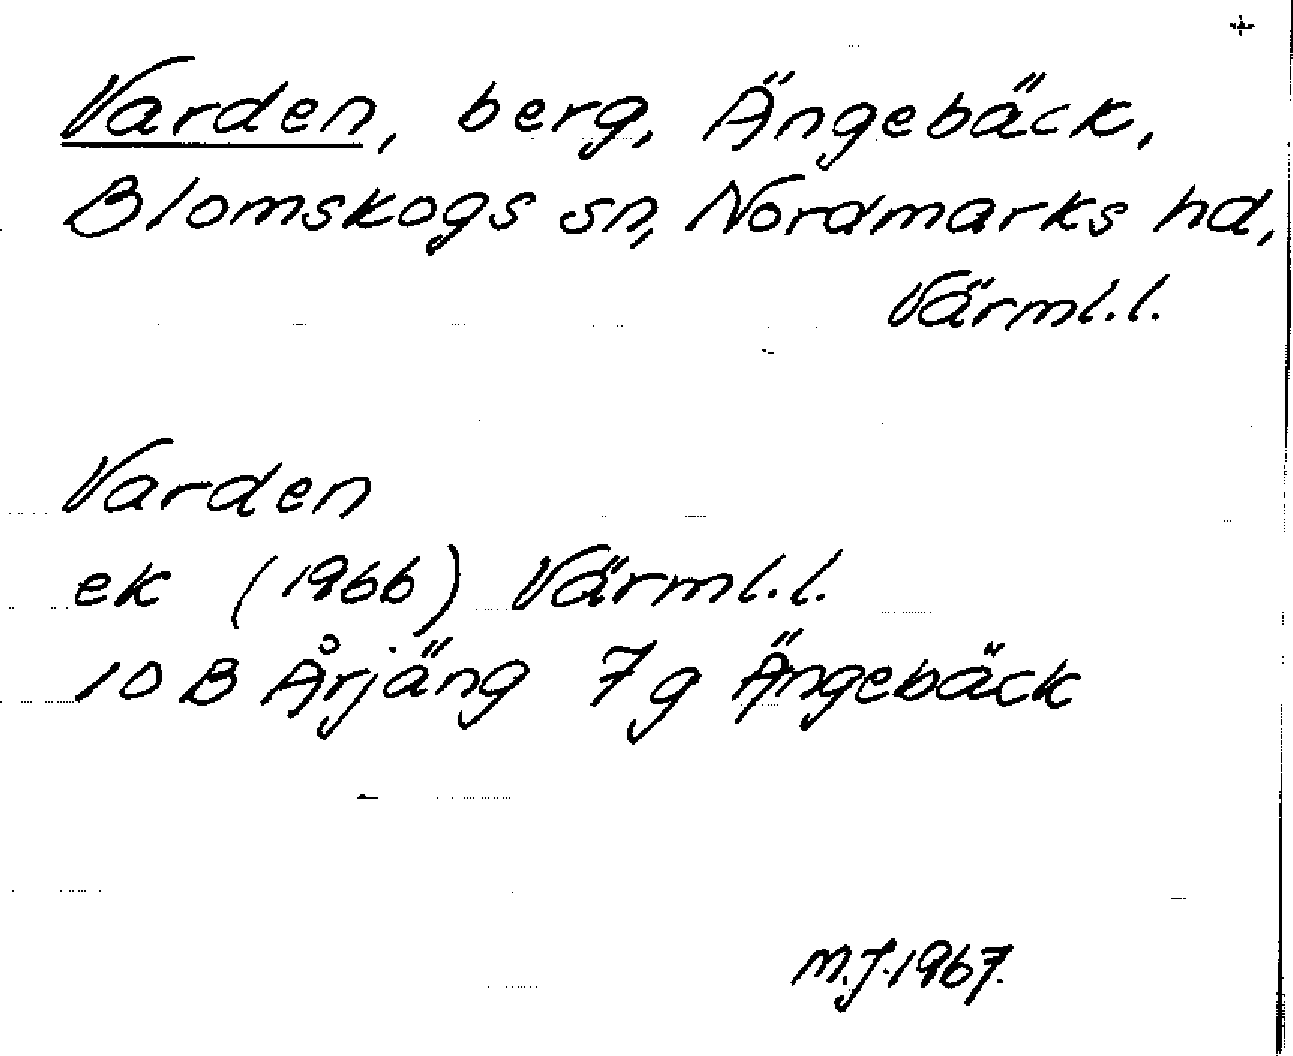 Varden, berg, Ängebäck,
Blomskogs sn, Nordmarks hd,
Värml.l.
Varden
ek (1966) Värml.l.
10 B Årjäng 7g Ängebäck
M.J. 1967.